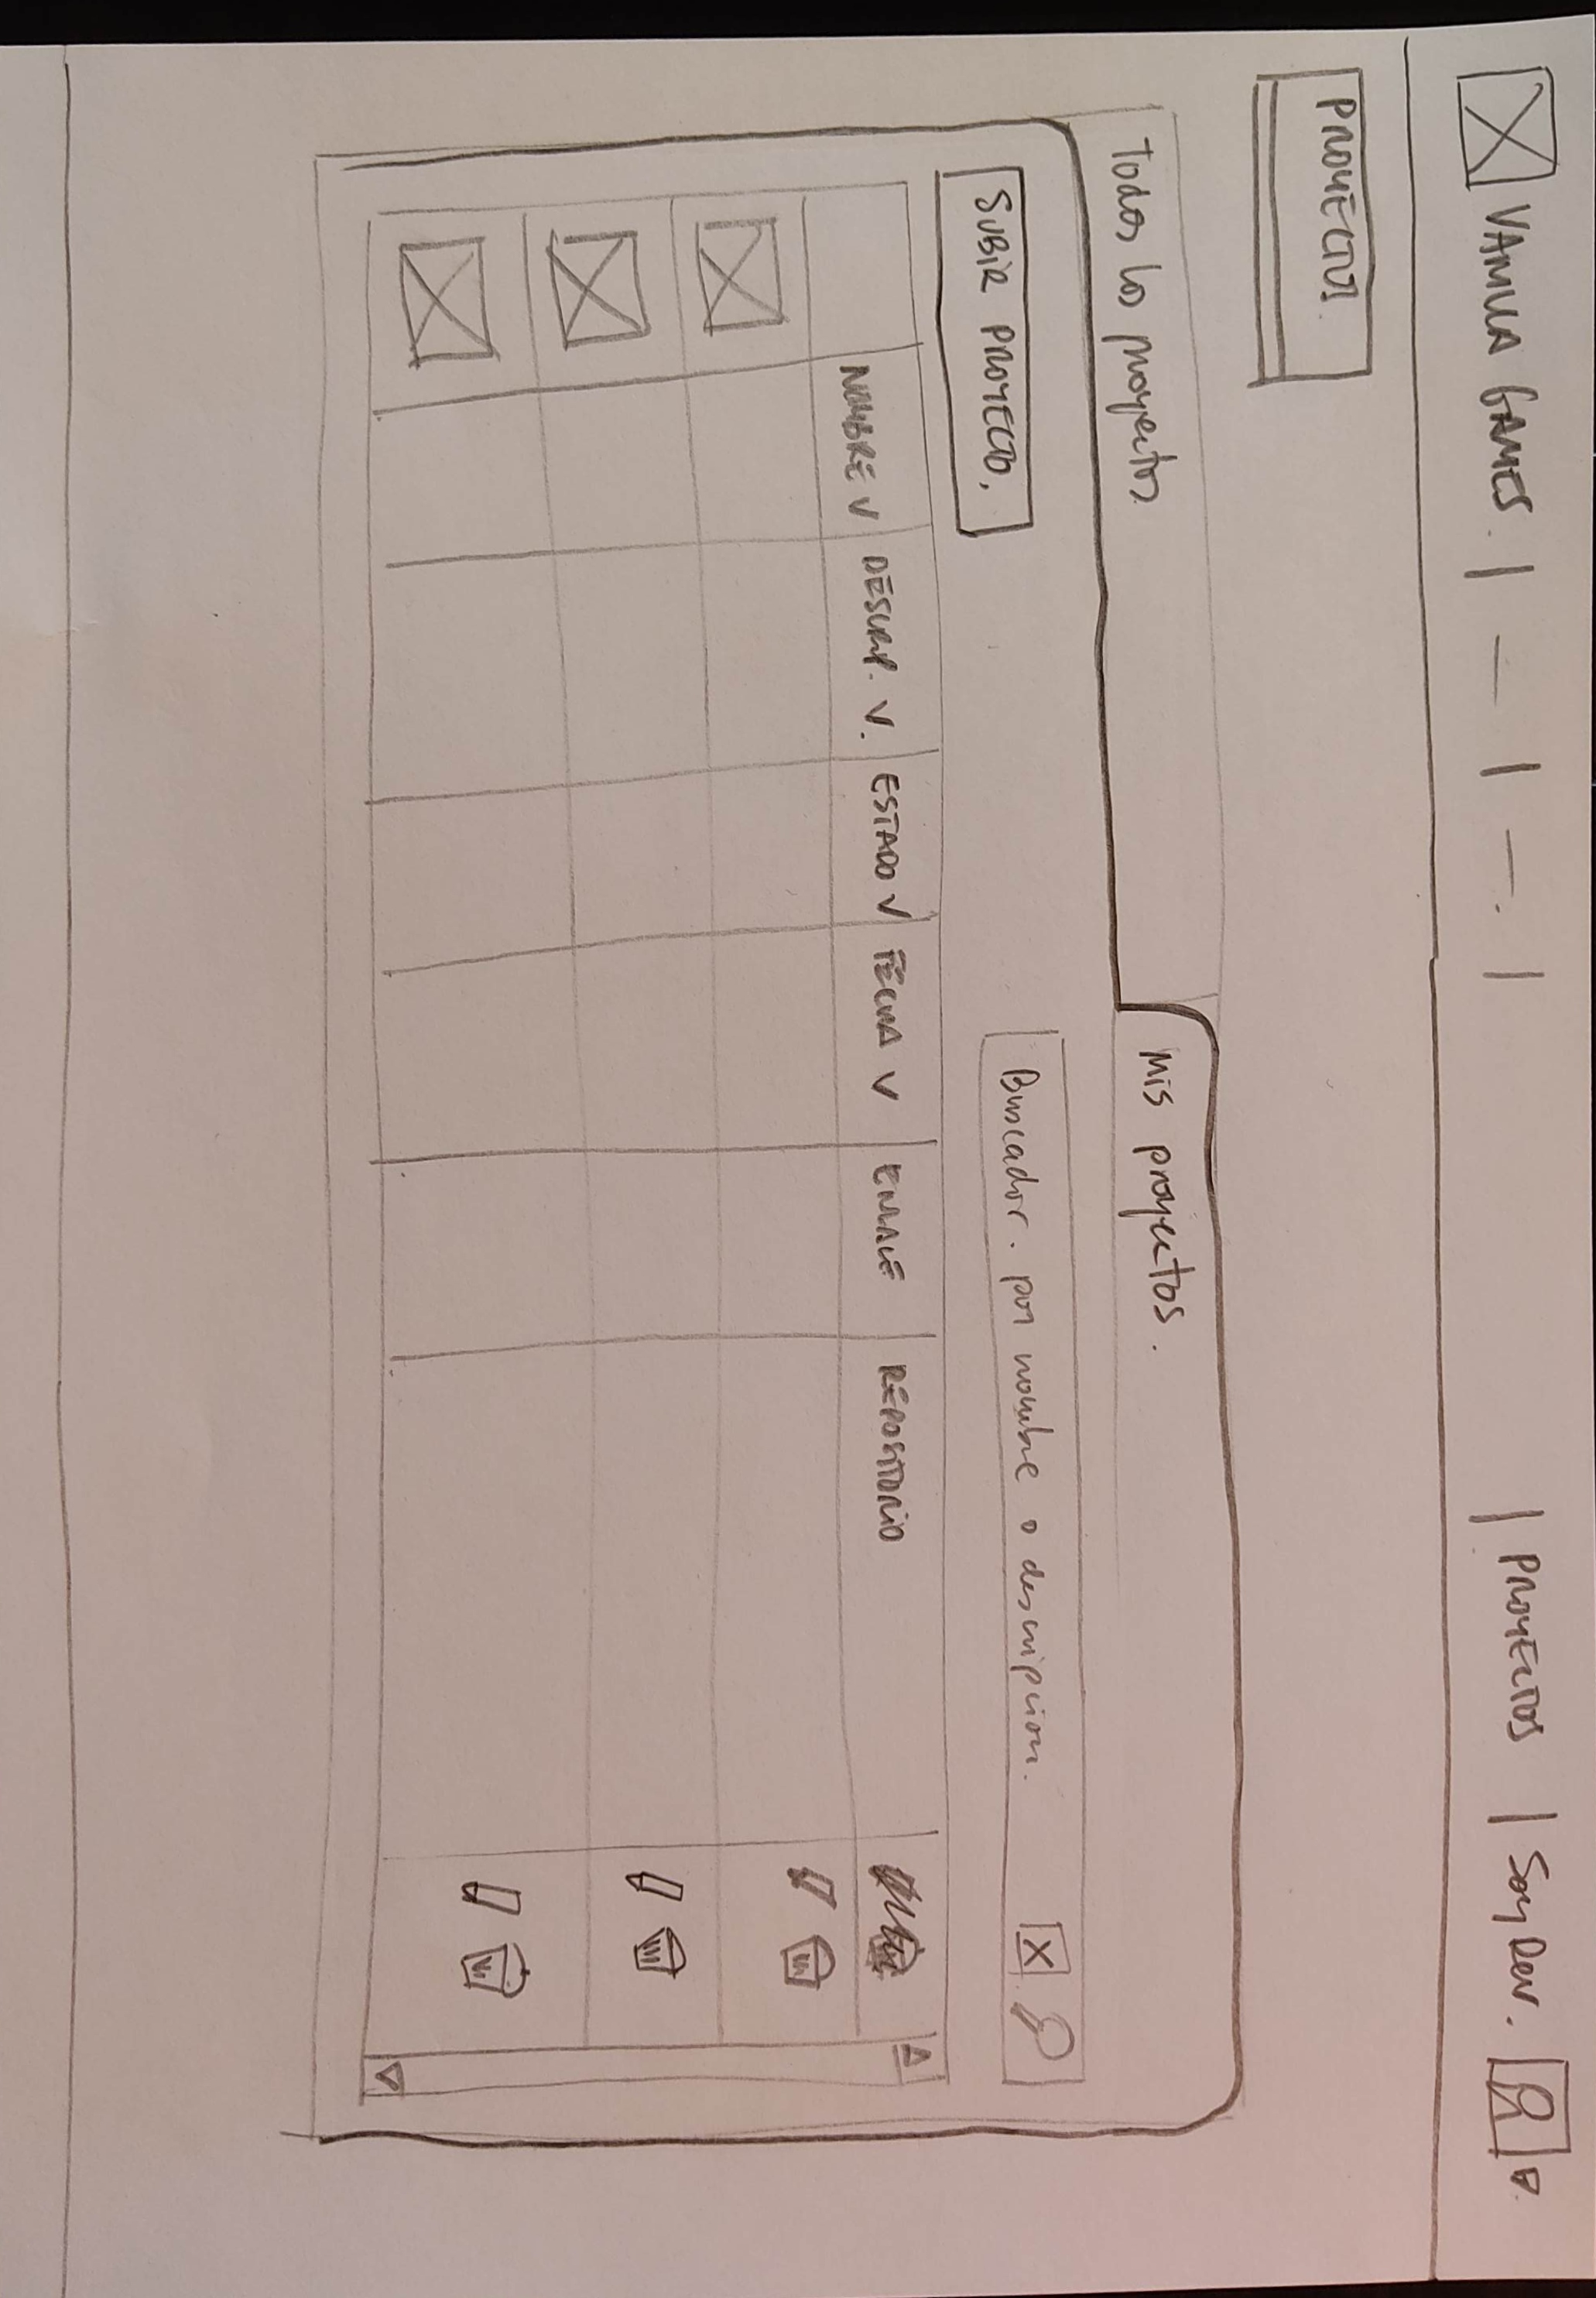 VANILLA GAMES. | — | —. | | PROYECTOS | Soy Dev.
PROYECTOS.
Todos los proyectos.
Mis proyectos.
SUBIR PROYECTO.
Buscador. por nombre o descripcion. X
NOMBRE V DESCRIP. V. ESTADO V FECHA V ENLACE REPOSITORIO